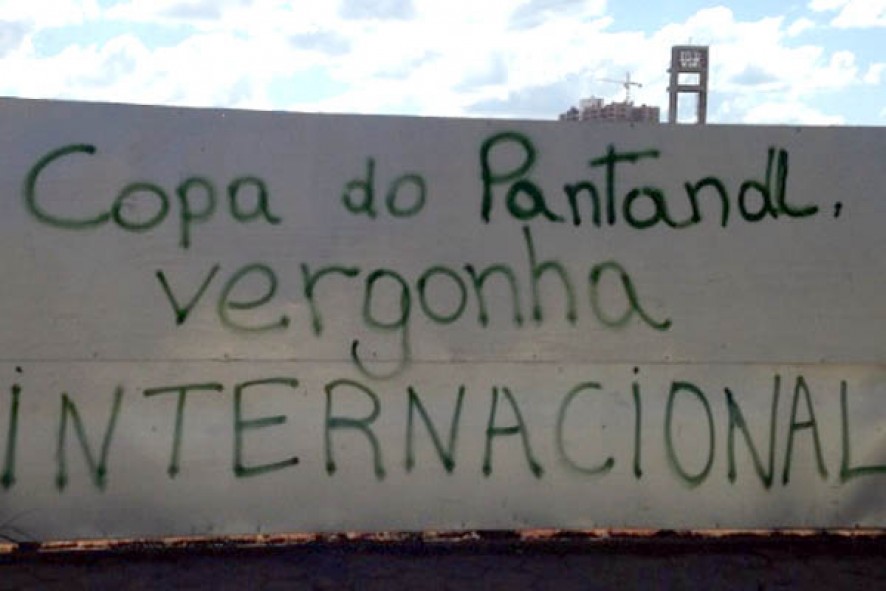 Copa do Pantanal,
vergonha
iNTERNACiONAL